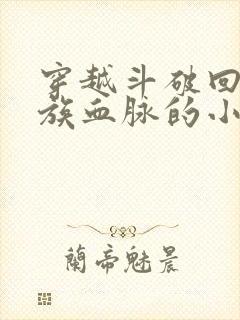 穿越斗破回
族血脉的小
蘭帝魅晨